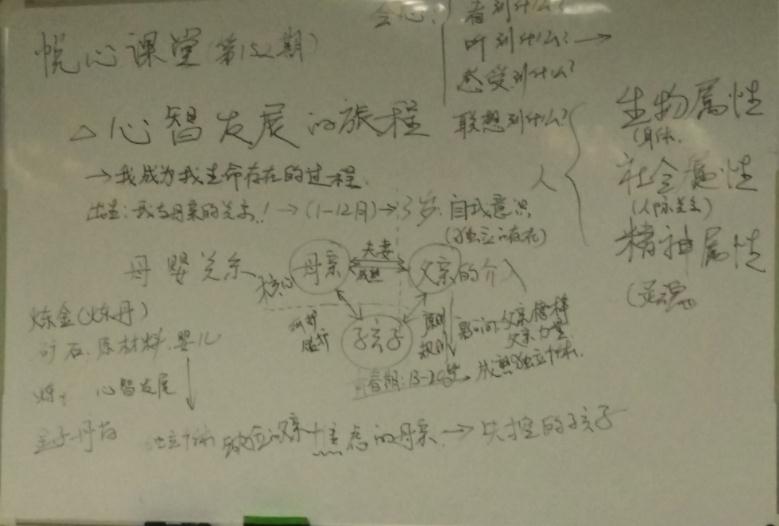 悦心课堂（第152期）
看到什么？
听到什么？→
感受到什么？
联想到什么？
△心智发展的旅程
→我成为我生命存在的过程
出生：我与母亲的关系！→(1-12月)→3岁 自我意识
(独立的存在)
人
生物属性
(身体
社会属性
(人际关系)
精神属性
(灵魂
母婴关系
核心
母亲
夫妻
父亲的介入
孩子
原则
规则
父亲榜样
父亲力量
青春期：13-20岁
成熟独立个体
炼金(炼丹)
矿石、原材料、婴儿
炼：心智发展
独立个体
焦虑的母亲→失控的孩子